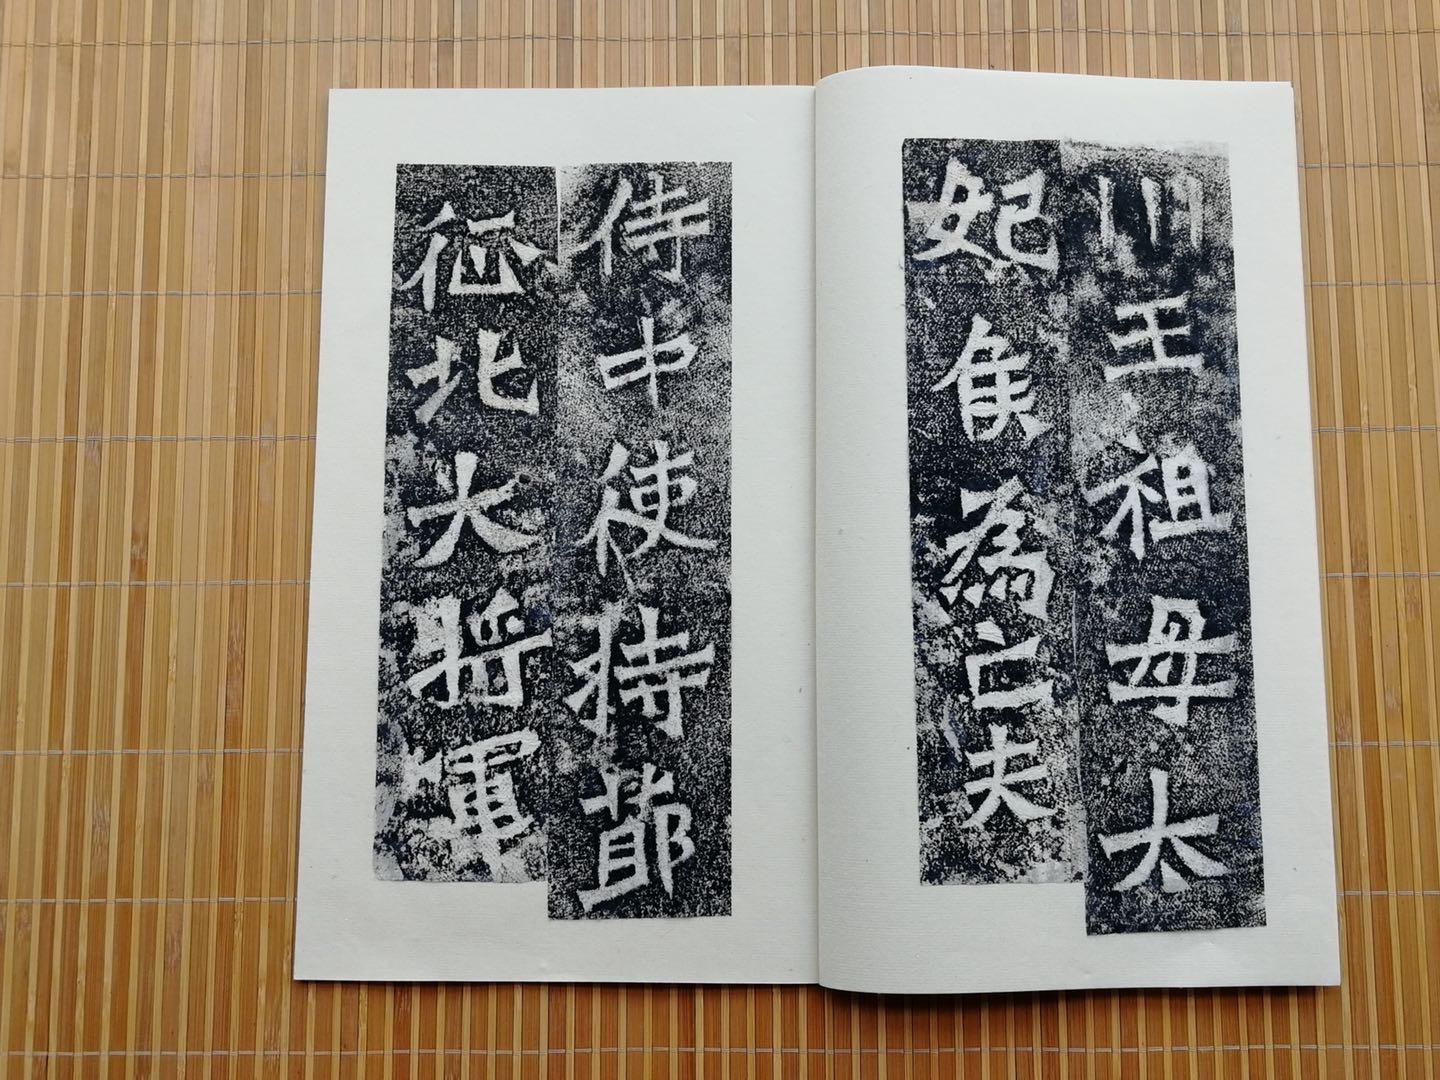 川王祖母太
妃侯為亡夫
侍中使持節
征北大將軍